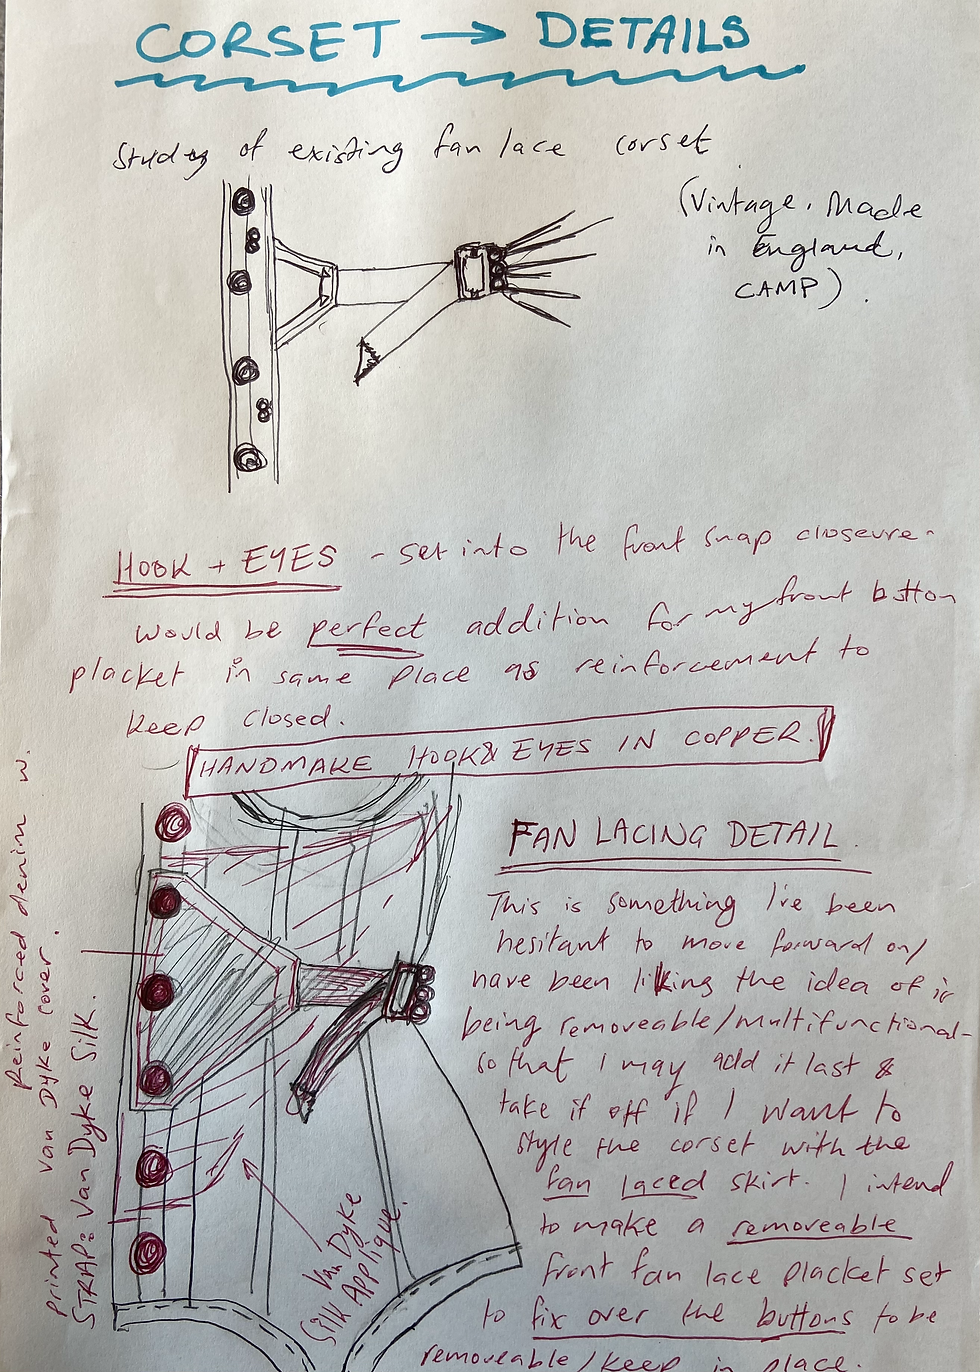 CORSET → DETAILS
Study of existing fan lace corset
(Vintage. Made
in England,
CAMP).
HOOK + EYES - set into the front snap closeure -
would be perfect addition for my front button
placket in same place as reinforcement to
keep closed.
HANDMAKE HOOK & EYES IN COPPER.
FAN LACING DETAIL.
This is something I've been
hesitant to move forward on/
have been liking the idea of it
being removeable/multifunctional -
so that I may add it last &
take it off if I want to
style the corset with the
fan laced skirt. I intend
to make a removeable
front fan lace placket set
to fix over the buttons to be
removeable/keep in place.
Reinforced denim w.
printed Van Dyke cover.
STRAP: Van Dyke Silk.
Van Dyke
Silk Applique.